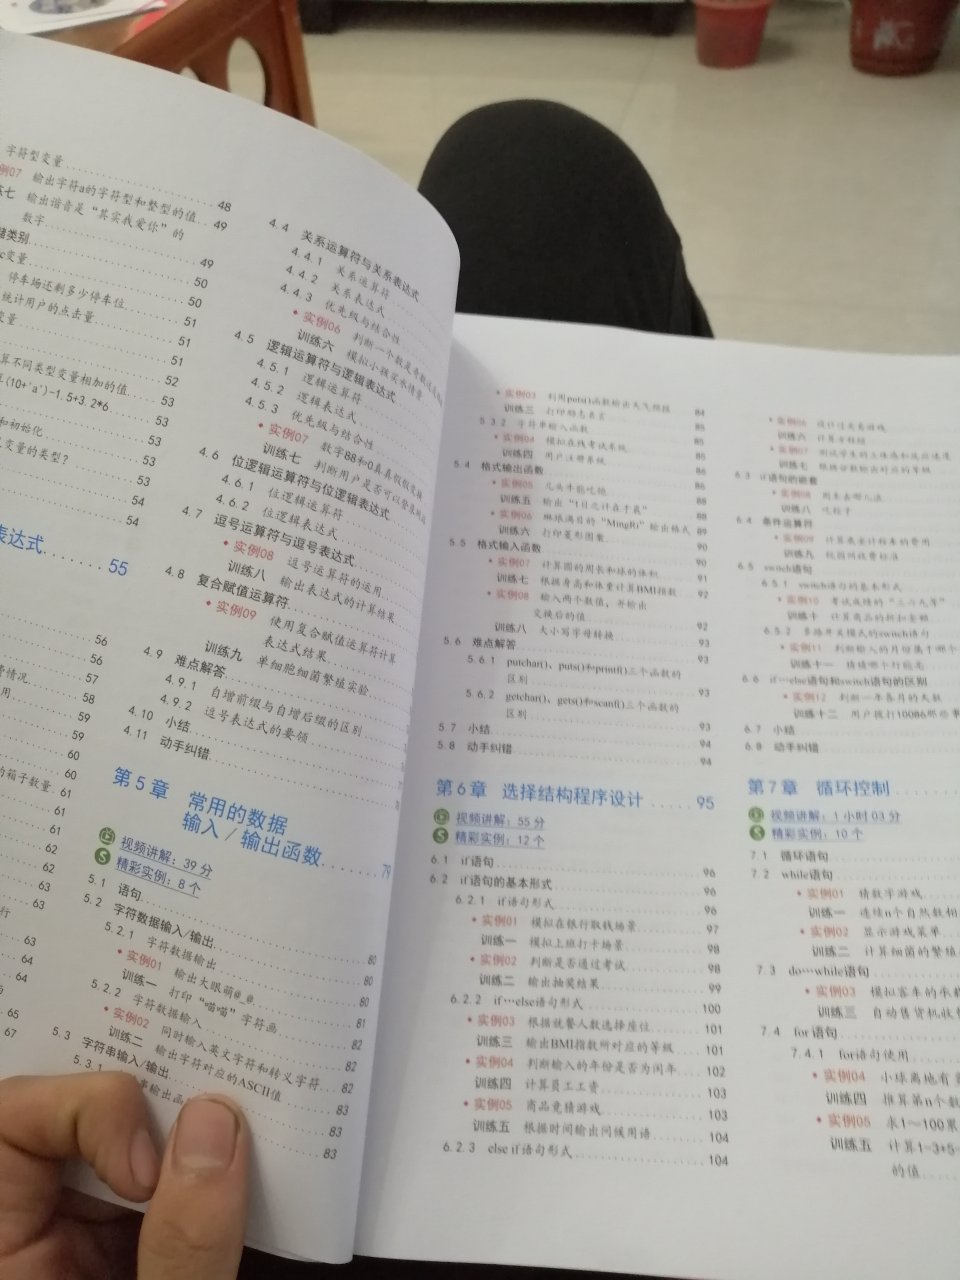 字符型变量
例07 输出字符a的字符型和整型的值 48
练七 输出谐音是“其实我爱你”的
数字 49
储类别 49
变量 50
停车场还剩多少停车位 50
统计用户的点击量 51
变量 51
51
算不同类型变量相加的值 52
(10+'a')-1.5+3.2*6 53
53
和初始化 53
变量的类型? 53
53
54
54
表达式 55
56
56
57
情况 58
用 59
59
60
60
的箱子数量 61
61
61
62
62
63
63
行 63
64
64
65
67
4.4 关系运算符与关系表达式
4.4.1 关系运算符
4.4.2 关系表达式
4.4.3 优先级与结合性
实例06 判断一个数是
训练六 模拟小孩买水
4.5 逻辑运算符与逻辑表达式
4.5.1 逻辑运算符
4.5.2 逻辑表达式
4.5.3 优先级与结合性
实例07 数字88和0真真假假变换
训练七 判断用户是否可以登录
4.6 位逻辑运算符与位逻辑表达式
4.6.1 位逻辑运算符
4.6.2 位逻辑表达式
4.7 逗号运算符与逗号表达式
实例08 逗号运算符的运用
训练八 输出表达式的计算结果
4.8 复合赋值运算符
实例09 使用复合赋值运算符计算
表达式结果
训练九 单细胞细菌繁殖实验
4.9 难点解答
4.9.1 自增前缀与自增后缀的区别
4.9.2 逗号表达式的要领
4.10 小结
4.11 动手纠错
第5章 常用的数据
输入/输出函数 79
视频讲解:39分
精彩实例:8个
5.1 语句 80
5.2 字符数据输入/输出 80
5.2.1 字符数据输出 80
实例01 输出大眼萌@_@ 81
训练一 打印“喵喵”字符画 82
5.2.2 字符数据输入 82
实例02 同时输入英文字符和转义字符 82
训练二 输出字符对应的ASCII值 83
5.3 字符串输入/输出 83
5.3.1 83
实例03 利用puts()函数输出天气预报 84
训练三 打印励志名言 85
5.3.2 字符串输入函数 85
实例04 模拟在线考试系统 85
训练四 用户注册系统 86
5.4 格式输出函数 86
实例05 几头牛能吃饱 88
训练五 输出“1日之计在于晨” 88
实例06 琳琅满目的“MingRi”输出格式 89
训练六 打印菱形图案 90
5.5 格式输入函数 90
实例07 计算圆的周长和球的体积 91
训练七 根据身高和体重计算BMI指数 92
实例08 输入两个数值,并输出
交换后的值 92
训练八 大小写字母转换 93
5.6 难点解答 93
5.6.1 putchar()、puts()和printf()三个函数的
区别 93
5.6.2 getchar()、gets()和scanf()三个函数的
区别 93
5.7 小结 94
5.8 动手纠错 94
第6章 选择结构程序设计 95
视频讲解:55分
精彩实例:12个
6.1 if语句 96
6.2 if语句的基本形式 96
6.2.1 if语句形式 96
实例01 模拟在银行取钱场景 97
训练一 模拟上班打卡场景 98
实例02 判断是否通过考试 98
训练二 输出抽奖结果 99
6.2.2 if…else语句形式 100
实例03 根据就餐人数选择座位 101
训练三 输出BMI指数所对应的等级 101
实例04 判断输入的年份是否为闰年 102
训练四 计算员工工资 103
实例05 商品竞猜游戏 103
训练五 根据时间输出问候用语 104
6.2.3 else if语句形式 104
实例06 设计过关类游戏
训练六 计算
实例07
训练七 根据分数输出对应的等级
6.3 if语句的嵌套
实例08 周末去哪儿浪
训练八 吃粽子
6.4 条件运算符
实例09 计算乘坐计程车的费用
训练九
6.5 switch语句
6.5.1 switch语句的基本形式
实例10 考试成绩的“三六九等”
训练十 计算商品的折扣金额
6.5.2 多路开关模式的switch语句
实例11 判断输入的月份属于哪个
训练十一 猜猜哪个灯能亮
6.6 if…else语句和switch语句的区别
实例12 判断一年各月的天数
训练十二 用户拨打10086那些事
6.7 小结
6.8 动手纠错
第7章 循环控制
视频讲解:1小时03分
精彩实例:10个
7.1 循环语句
7.2 while语句
实例01 猜数字游戏
训练一 连续n个自然数相
实例02 显示游戏菜单
训练二 计算细菌的繁殖
7.3 do…while语句
实例03 模拟客车的承载
训练三 自动售货机收
7.4 for语句
7.4.1 for语句使用
实例04 小球离地有
训练四 推算第n个数
实例05 求1~100累
训练五 计算1-3+5-
的值